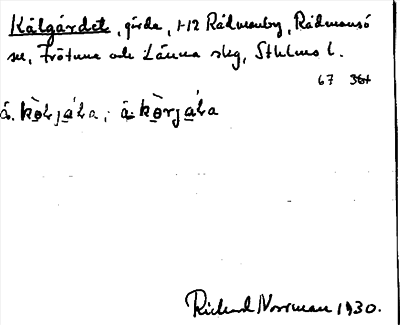 Kålgärdet, gärde, 1-12 Rådmanby, Rådmansö
sn, Frötuna och Länna skg, Sthlms l.
67
å.
Richard Norrman 1930.